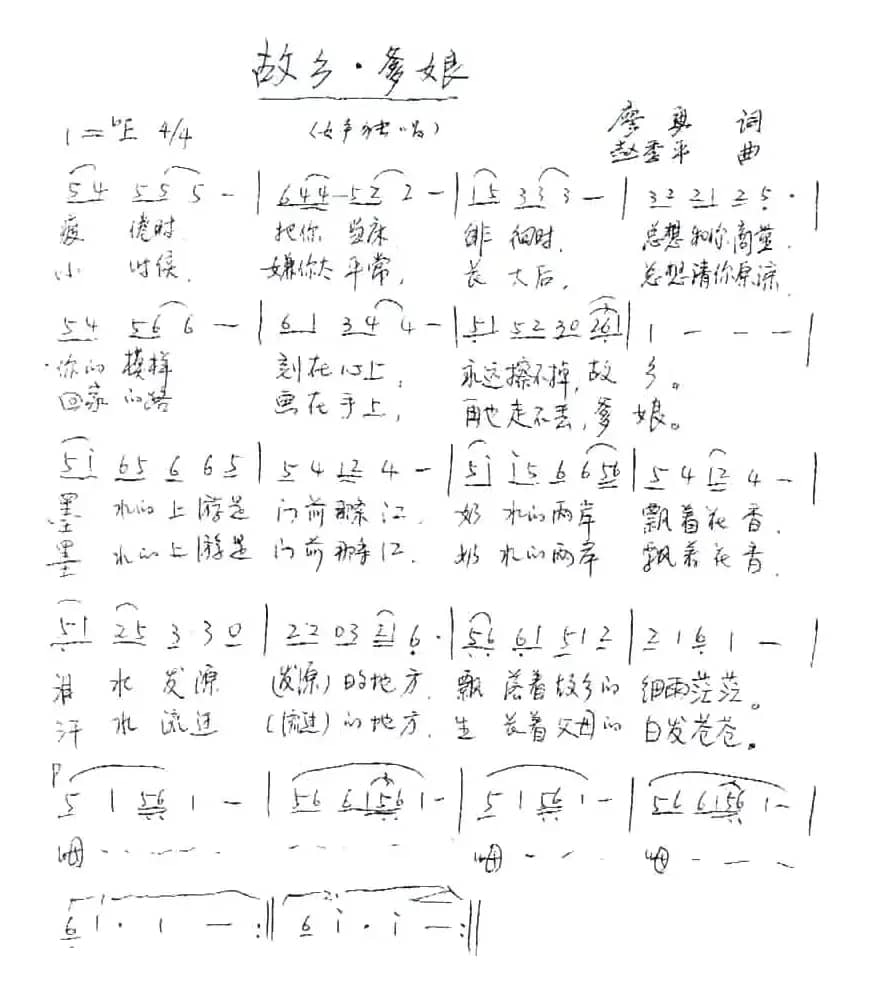 故乡·爹娘
1=♭E 4/4 (女声独唱) 廖勇 词
赵季平 曲
5 4 5 5 5 - | 6 4 4 - 5 2 2 - | 1 5 3 3 3 - | 3 2 2 1 2 5 · |
疲倦时 把你当床 徘徊时, 总想和你商量.
小时候, 嫌你太平常, 长大后, 总想请你原谅
5 4 5 6 6 - | 6 1 3 4 4 - | 5 1 5 2 3 0 2 6 1 | 1 - - - |
你的模样 刻在心上, 永远擦不掉,故乡。
回家的路 画在手上, 再也走不丢,爹娘。
5 i 6 5 6 6 5 | 5 4 1 2 4 - | 5 i i 5 6 6 5 6 | 5 4 1 2 4 - |
墨水的上游是 门前那条江. 奶水的两岸 飘着花香.
墨水的上游是 门前那条江. 奶水的两岸 飘着花香.
5 1 2 5 3 · 3 0 | 2 2 0 3 2 1 6 · | 5 6 6 1 5 1 2 | 2 1 6 1 - |
泪水发源 (发源)的地方. 飘荡着故乡的 细雨茫茫。
汗水流过 (流过)的地方. 生长着父母的 白发苍苍。
P
5 1 5 6 1 - | 5 6 6 1 5 6 1 - | 5 1 5 6 1 - | 5 6 6 1 5 6 1 - |
呣 - - - - - - - - - - 呣 - - - 呣 - - -
1. 2.
6 1 · 1 - :|| 6 i · i - :||